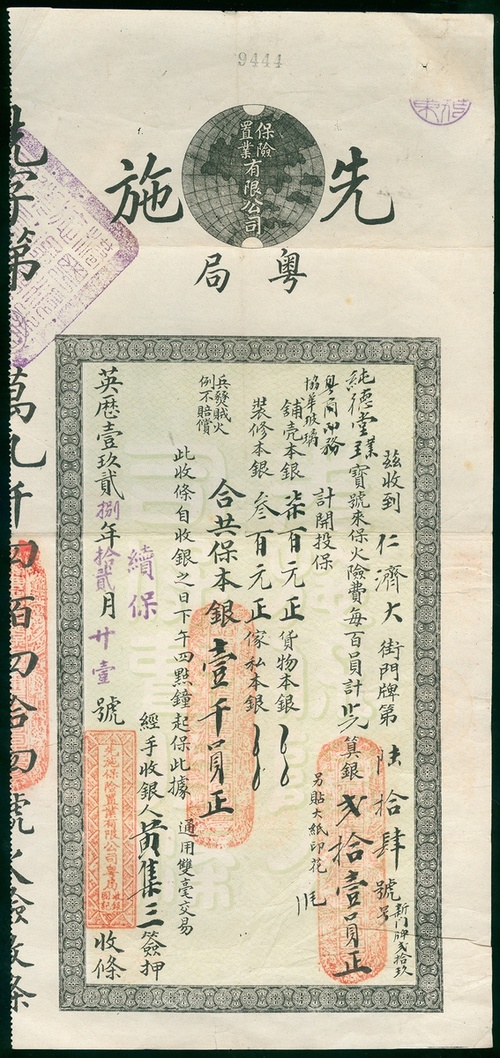 9444
先施
保險
置業
有限公司
粵局
茲收到仁濟大街門牌第陸拾肆號
新門牌弍拾玖
純德堂
寶號來保火險費每百員計
算銀弍拾壹員正
粵商內務
協華玻璃
計開投保
另貼大紙印花
舖壳本銀柒百元正貨物本銀
裝修本銀叁百元正傢私本銀
合共保本銀壹千員正
兵發賊火
例不賠償
此收條自收銀之日下午四點鐘起保此據
通用雙毫交易
續保
經手收銀人黃集三簽押
英歷壹玖貳捌年拾貳月廿壹號
先施保險置業有限公司粵局
收條
先字第萬九仟四百四拾四號火險收條